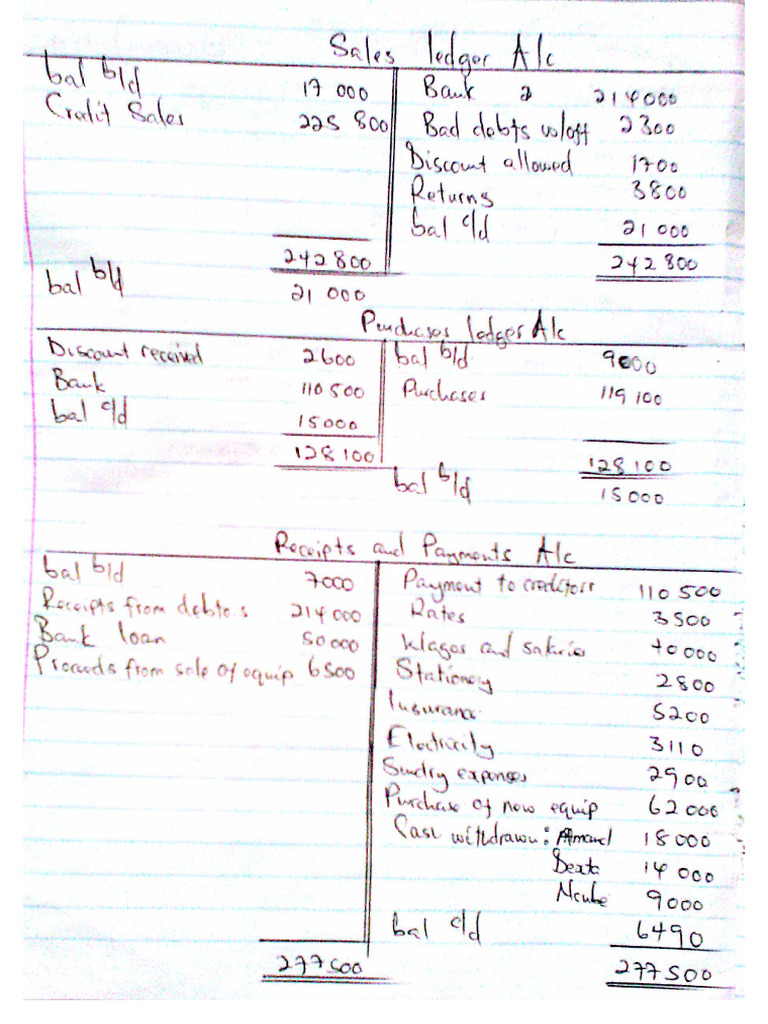 Sales ledger A/c
bal b/d 17 000 Bank 214000
Credit Sales 225 800 Bad debts w/off 2300
Discount allowed 1700
Returns 3800
bal c/d 21 000
242800 242800
bal b/d 21 000
Purchases ledger A/c
Discount received 2600 bal b/d 9000
Bank 110 500 Purchases 119 100
bal c/d 15000
128100 128100
bal b/d 15000
Receipts and Payments A/c
bal b/d 7000 Payment to creditors 110 500
Receipts from debtors 214000 Rates 3500
Bank loan 50000 Wages and salaries 40000
Proceeds from sale of equip 6500 Stationery 2800
Insurance 5200
Electricity 3110
Sundry expenses 2900
Purchase of new equip 62000
Cash withdrawn: 18000
14 000
Ncube 9000
bal c/d 6490
277500 277500